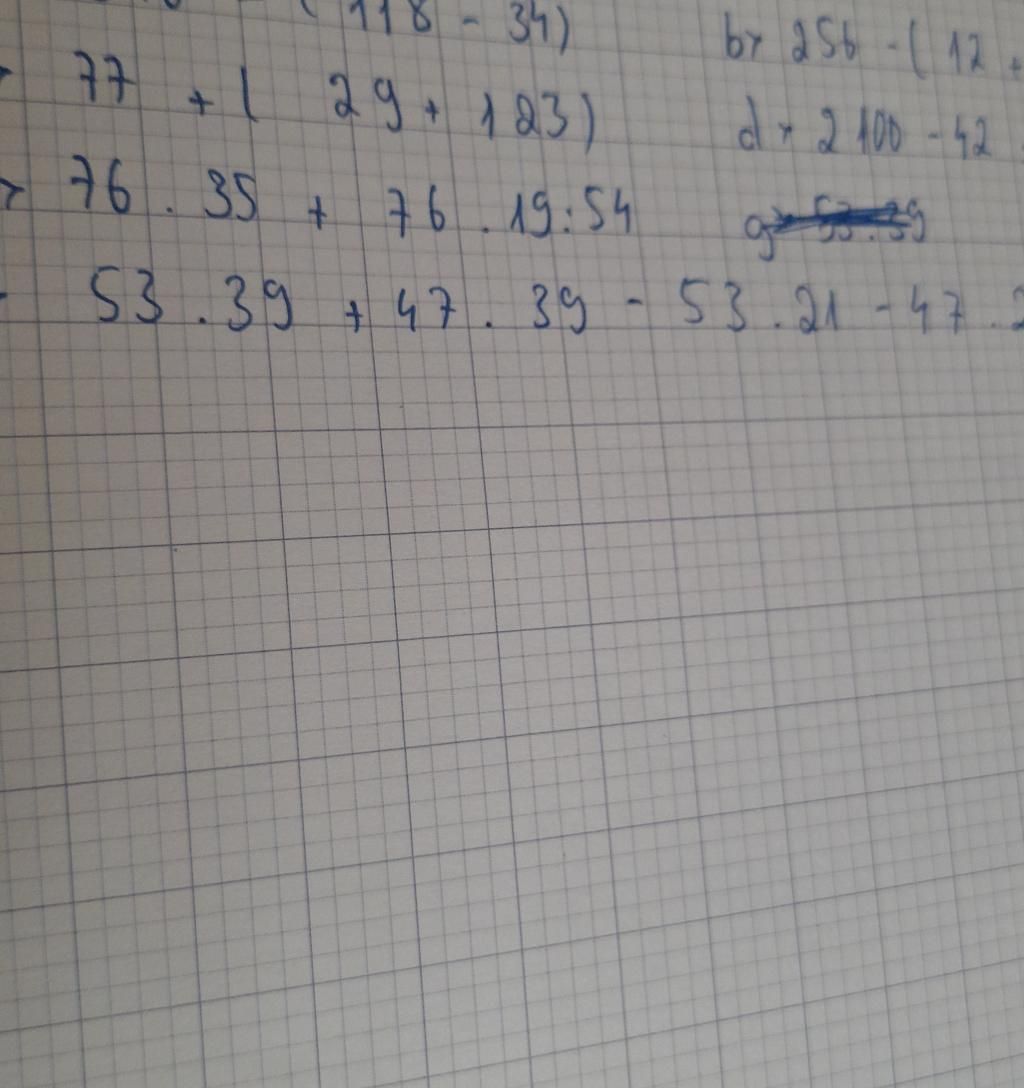 (118 - 34) b> 256 - ( 12 +
77 + ( 29 + 123) d> 2100 - 42
76 . 35 + 76 . 19 : 54
53 . 39 + 47 . 39 - 53 . 21 - 47 .